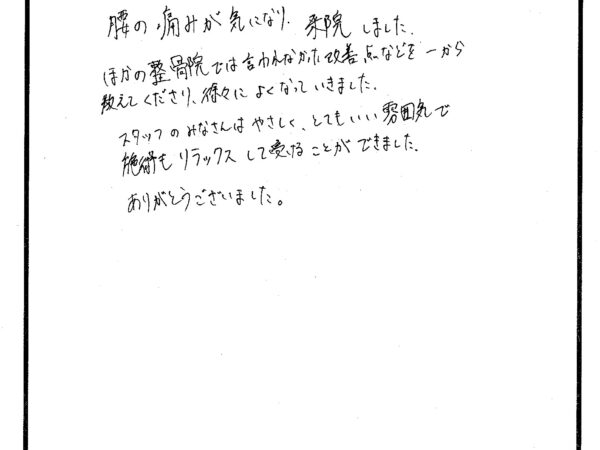 腰の痛みが気になり、来院しました。
ほかの整骨院では言われなかった改善点などを一から
教えてくださり、徐々によくなっていきました。
スタッフのみなさんはやさしく、とてもいい雰囲気で
施術もリラックスして受けることができました。
ありがとうございました。